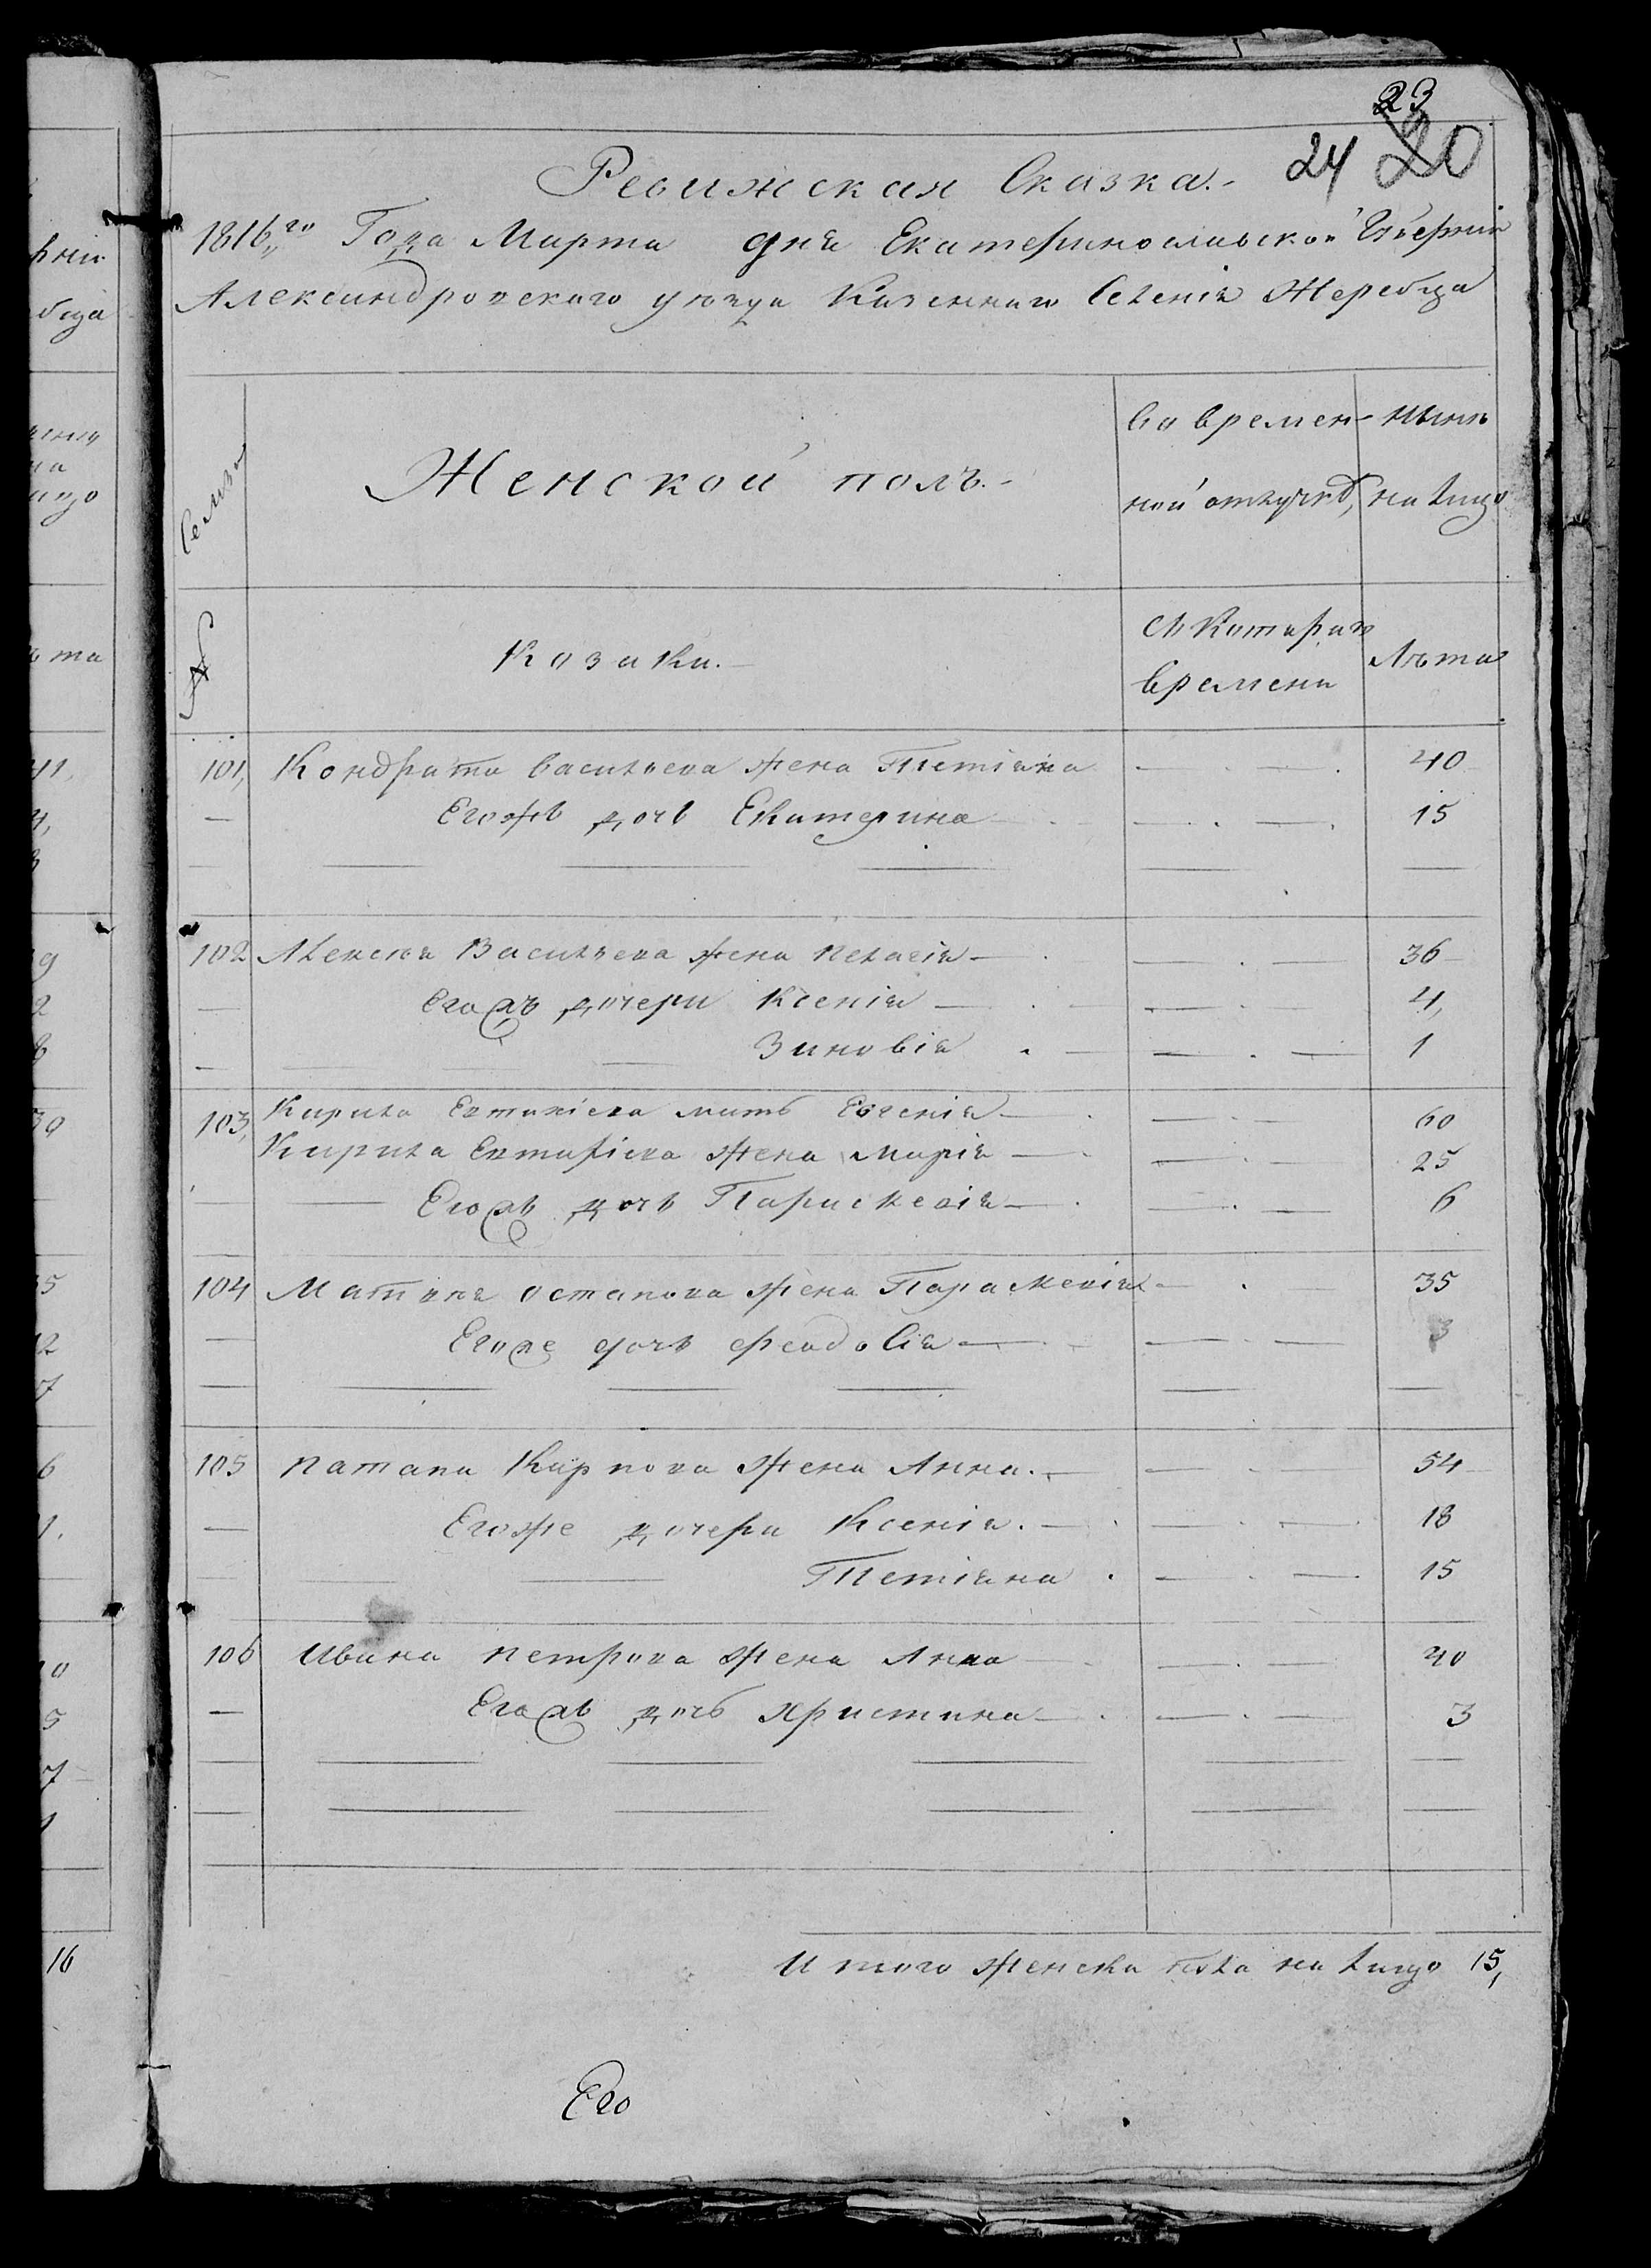 23
24 20
Ревижская Сказка.-
1816го Года Марта дня Екатеринославской Губерніи
Александровскаго уѣзда Казеннаго Селенія Жеребца
Семьи
Женской полъ.-
во времен-
ной отлучкѣ,
нынѣ
на лицо
№
Козаки.-
съ Котораго
времени
Лѣта
101, Кондрата Васильева жена Тетіяна 40
Егожъ дочь Екатерина 15
102 Алексѣя Васильева жена Пелагія 36
Егожъ дочери Ксенія 4,
Зиновія 1
103, Кирила Евтихіева мать Евгенія 60
Кирила Евтихіева жена Марія 25
Егожъ дочь Параскевія 6
104 Матвѣя Остапова жена Параскевія 35
Егоже дочь Феодосія 3
105 Патапа Карпова жена Анна. 54
Егоже дочери Ксенія. 18
Тетіяна 15
106 Ивана Петрова жена Анна 40
Егожъ дочь Христина 3
Итого женска пола на лицо 15,
Его
рніи
бца
лицо
ѣта
41,
4,
8
9
2
8
39
35
12
7
6
1,
5
7
16